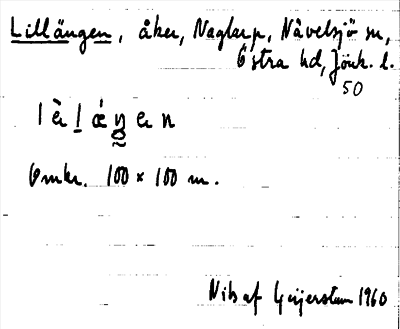 Lillängen, åker, Naglarp, Nävelsjö sn,
Östra hd, Jönk. l.
50
Omkr. 100 x 100 m.
Nils af Geijerstam 1960